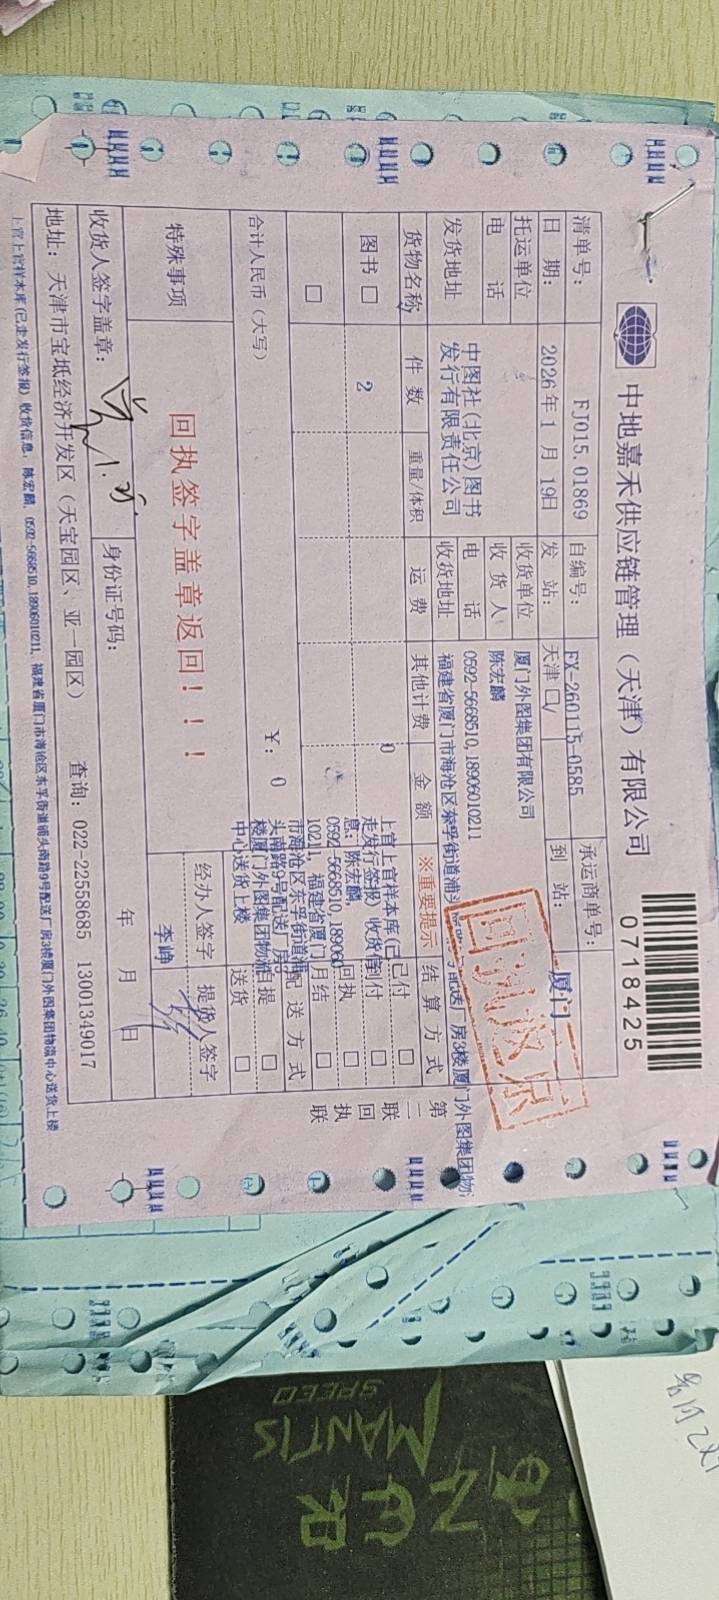 中地嘉禾供应链管理（天津）有限公司
0718425
清单号： FJ015.01869 自编号： FX-260115-0585 承运商单号：
日 期： 2026年1月19日 发 站： 天津 到 站： 厦门
托运单位 收货单位 厦门外图集团有限公司
电 话 收 货 人 陈宏麟
中图社(北京)图书发行有限责任公司 电 话 0592-5668510,18906010211
发货地址 收货地址 福建省厦门市海沧区东孚街道浦头南路9号配送厂房3楼厦门外图集团物流
货物名称 件 数 重量/体积 运 费 其他计费 金 额 ※重要提示 结 算 方 式
图书 □ 2 0
□
上官上官样本库(已走发行签报) 收货信息：陈宏麟, 0592-5668510,18906010211, 福建省厦门市海沧区东孚街道浦头南路9号配送厂房3楼厦门外图集团物流中心送货上楼
已付 □
到付 □
回执 □
月结 □
配 送 方 式
自提 □
送货 □
合计人民币（大写） ￥： 0
特殊事项 回执签字盖章返回！！！
经办人签字 提货人签字
李峥
收货人签字盖章： 身份证号码： 年 月 日
地址：天津市宝坻经济开发区（天宝园区、亚一园区） 查询：022-22558685 13001349017
上官上官样本库(已走发行签报) 收货信息：陈宏麟, 0592-5668510,18906010211, 福建省厦门市海沧区东孚街道浦头南路9号配送厂房3楼厦门外图集团物流中心送货上楼
第二联 回执联
MANTIS
SPEED